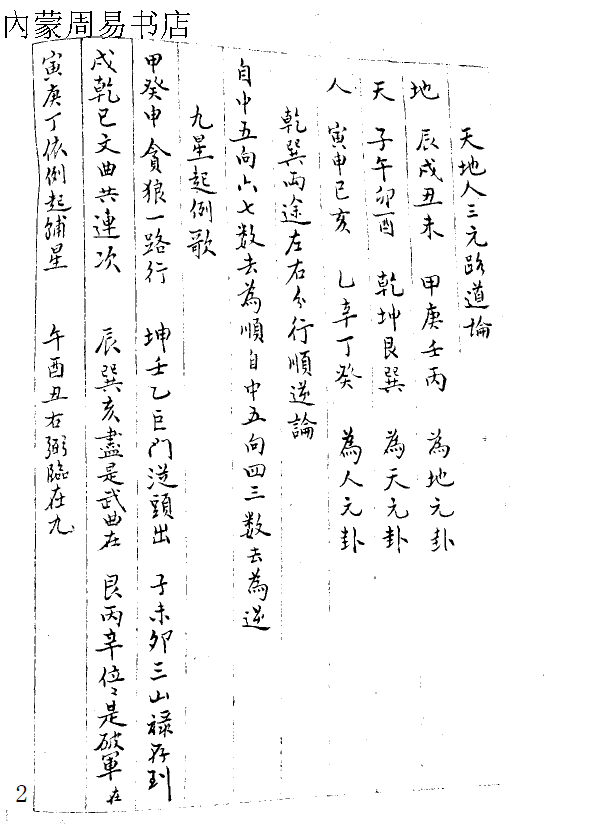 內蒙周易书店
天地人三元路道論
地 辰戌丑未 甲庚壬丙 為地元卦
天 子午卯酉 乾坤艮巽 為天元卦
人 寅申巳亥 乙辛丁癸 為人元卦
乾巽兩途左右分行順逆論
自中五向六七数去為順自中五向四三数去為逆
九星起例歌
甲癸申貪狼一路行 坤壬乙巨門從頭出 子未卯三山禄存到
戌乾巳文曲共連次 辰巽亥盡是武曲在 艮丙辛位々是破軍在
寅庚丁依例起辅星 午酉丑右弼臨在九
2